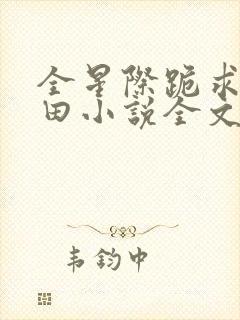 全星際跪求
田小說全文
韦钧中